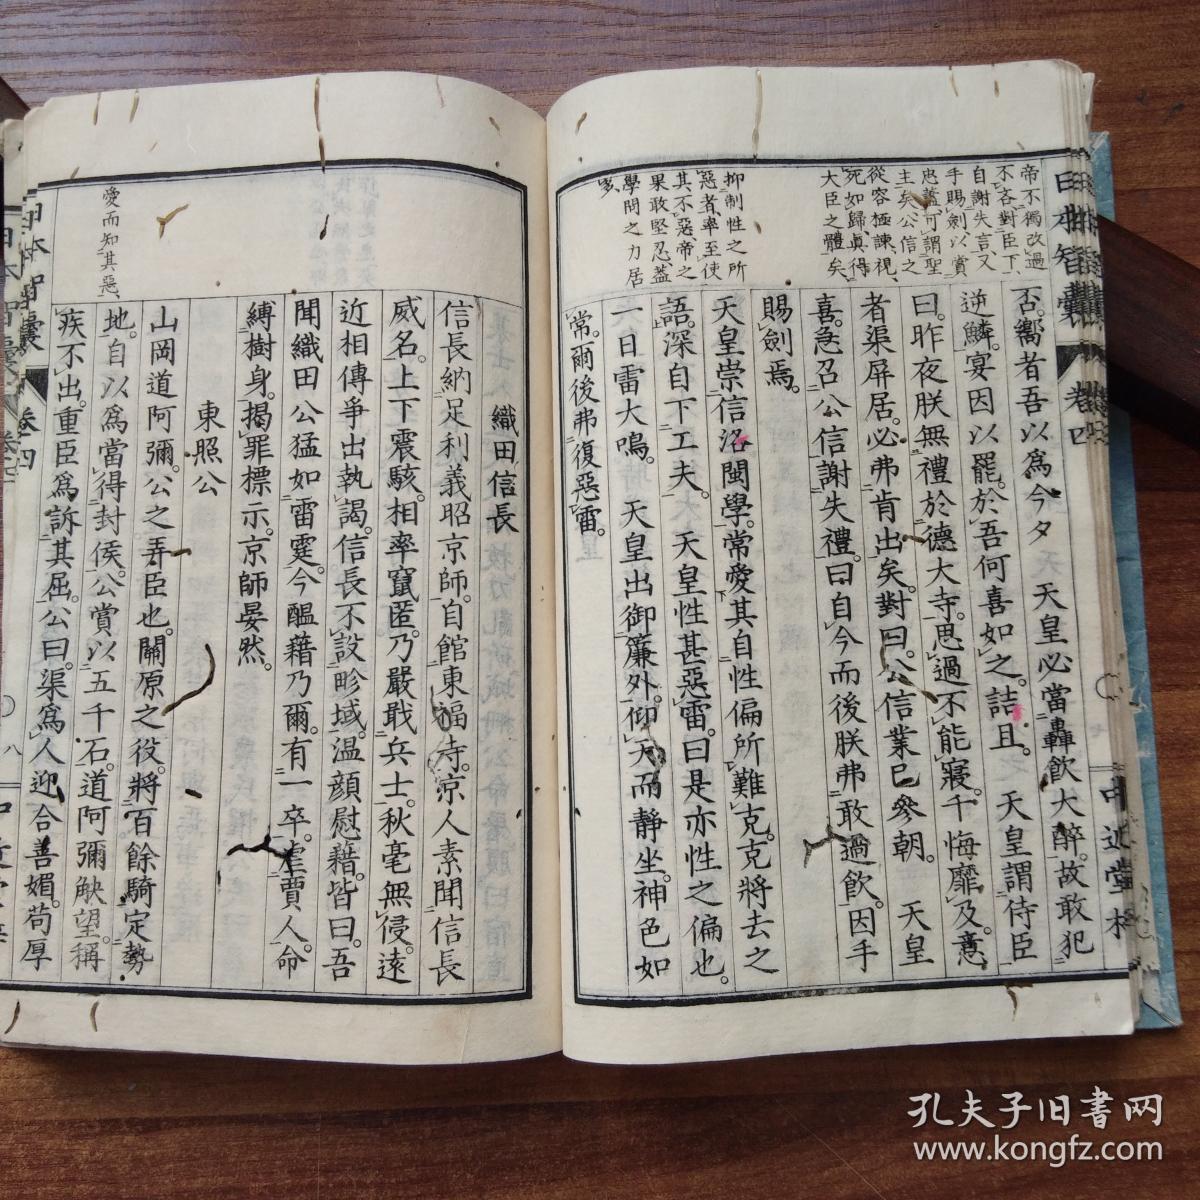 日本智囊 卷四 中近堂梓
帝不獨改過
不吝對臣下
自謝失言又
手賜劍以賞
忠蓋可謂聖
主矣公信之
從容極諫視
死如歸眞得
大臣之體矣
抑制性之所
惡者率至使
其不惡帝之
果敢堅忍蓋
學問之力居
多
否嚮者吾以爲今夕 天皇必當轟飲大醉故敢犯
逆鱗宴因以罷於吾何喜如之詰旦 天皇謂侍臣
曰昨夜朕無禮於德大寺思過不能寢千悔靡及意
者渠屏居必弗肯出矣對曰公信業已參朝 天皇
喜急召公信謝失禮曰自今而後朕弗敢過飲因手
賜劍焉
天皇崇信洛閩學常愛其自性偏所難克克將去之
語深自下工夫 天皇性甚惡雷曰是亦性之偏也
一日雷大鳴 天皇出御簾外仰天而靜坐神色如
常爾後弗復惡雷
織田信長
信長納足利義昭京師自館東福寺京人素聞信長
威名上下震駭相率竄匿乃嚴戢兵士秋毫無侵遠
近相傳爭出執謁信長不設畛域溫顔慰藉皆曰吾
聞織田公猛如雷霆今醞藉乃爾有一卒虐賈人命
縛樹身揭罪標示京師晏然
東照公
愛而知其惡
山岡道阿彌公之弄臣也關原之役將百餘騎定勢
地自以爲當得封侯公賞以五千石道阿彌觖望稱
疾不出重臣爲訴其屈公曰渠爲人迎合善媚苟厚
日本智囊 卷四 八
孔夫子旧书网
www.kongfz.com